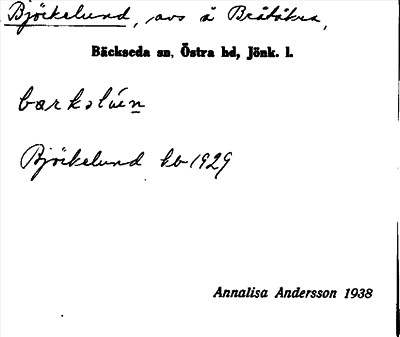 Björkelund, avs å Bråtåkra,
Bäckseda sn, Östra hd, Jönk. l.
bœrkəlún̲
Björkelund kb 1929
Annalisa Andersson 1938